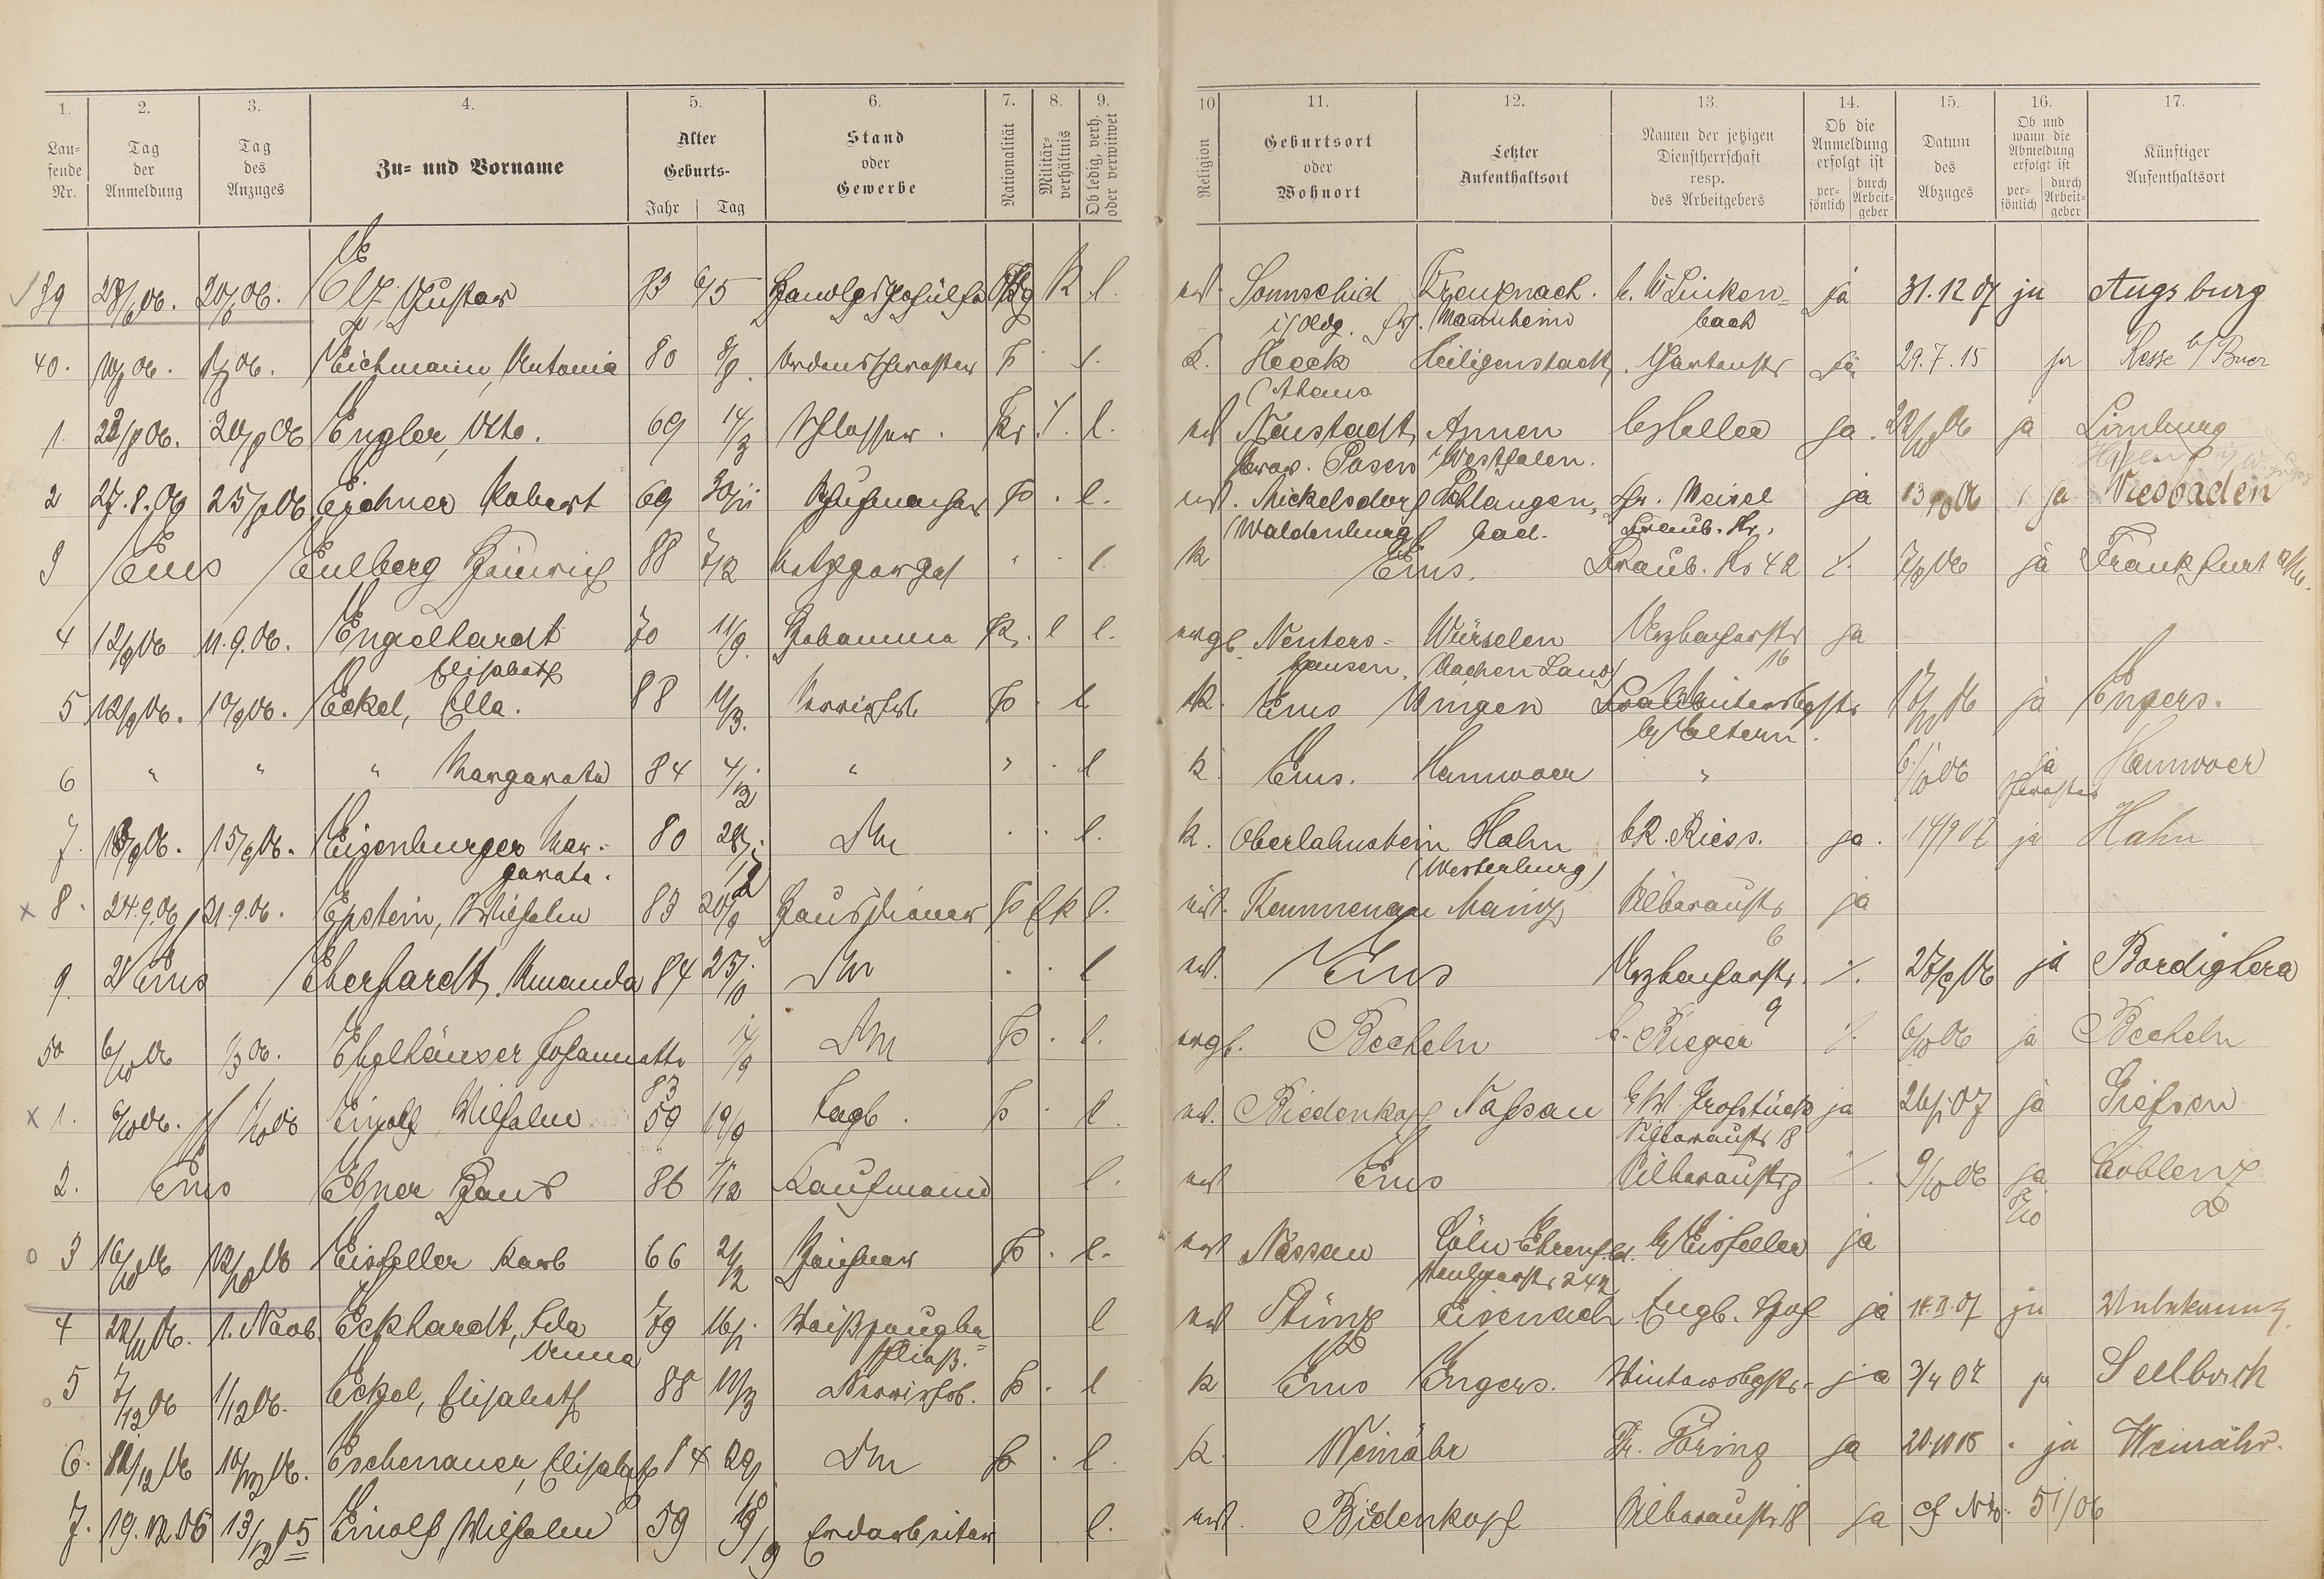 1. 2. 3. 4. 5. 6. 7. 8. 9. 10 11. 12. 13. 14. 15. 16. 17.
Lau-fende Nr. Tag der Anmeldung Tag des Anzuges Zu- und Vorname Alter Geburts- Jahr Tag Stand oder Gewerbe Nationalität Militär-verhältnis Ob ledig, verh. oder verwitwet Religion Geburtsort oder Wohnort Letzter Aufenthaltsort Namen der jetzigen Dienstherrschaft resp. des Arbeitgebers Ob die Anmeldung erfolgt ist per-sönlich durch Arbeit-geber Datum des Abzuges Ob und wann die Abmeldung erfolgt ist per-sönlich durch Arbeit-geber Künftiger Aufenthaltsort
E
39 28/6 06. 20/6 06. Elz, Gustav 83 6/5 Handlgsgehülfe K l. ev. Sonnschid Kreuznach. b. W Linken- ja 31.12 07 ja Augsburg
i/Oldg. Mannheim bach
40. 06. 06. Eichmann, Antonia 80 8/9. Ordensschwester P l. K. Heeck Heiligenstadt, Gartenstr ja 29.7.15 ja Resse b/Buer
(Ahaus
1. 22/8 06. 20/8 06 Engler, Otto. 69 14/3 Schlosser. Pr. ./. l. ev Neustadt, Annen b/Heller ja. 22/10 06 ja Limburg
Prov. Posen i/Westfalen.
2 27.8.06 25/8 06 Eichner Robert 69 30/11 Schuhmacher P . l. ev. Mickelsdorf Schlangen- Fr. Meisel ja 13/10 06 ja Wiesbaden
(Waldenburg) bad. Graub. Str.
3 Ems Eulberg Heinrich 88 7/12 Metzgerges " l K Ems. Graub. Str 42 ./. 7/9 06 ja Frankfurt a/M.
4 12/9 06 11.9.06. Engelhardt 70 11/9. Hebamme P. l l. evgl. Nenters- Würselen Arzbacherstr ja
Elisabeth hausen. (Aachen-Land) 16
5 12/9 06. 10/9 06. Eckel, Ella. 88 11/3. Servirfrl. P . l K. Ems Bingen Wintersbgstr 17/10 06 ja Engers.
b/Eltern.
6 " " " Margareta 84 4/12 " " . l K. Ems. Hannover " 6/10 06 ja Hannover
7. 18/9 06. 15/9 06. Eisenburger Mar- 80 28/12 Dm . . l. K. Oberlahnstein Hahn b R. Riess. ja. 14/9 07 ja Hahn
gareta. (Westerburg)
8. 24.9.06 21.9.06. Epstein, Wilhelm 83 20/9 Hausdiener P l. ev. Kemmenau Mainz Silberaustr ja
6
9. Ems Eberhardt, Amanda 84 25/10 Dm . . l ev. Ems Arzbacherstr. ./. 27/9 06 ja Bordighera
9
50 6/10 06 06. Ebelhäuser Johannette 17/9 Dm P . l. evgl. Becheln b. Rieger ./. 6/10 06 ja Becheln
83
1. 9/10 06. 1/10 06 Einolf, Wilhelm 59 19/9 Tagl. P . l. ev. Biedenkopf Nassau b/W. Großstück ja 26/1 07 ja Giessen
Silberaustr 18
2. Ems Ebner Hans 86 /12 Kaufmann l. ev Ems Silberaustr ./. 9/10 06 ja Coblenz
7/10
3 16/10 06 12/10 06 Eisfeller Karl 66 2/2 P . l. ev Nassau Cöln Ehrenfld. b/Eisfeller ja
242
4 22/11 06. 1. Novb. Eckhardt, Ida 79 16/1 Weißzeugbe- l ev Stünz Eisenach Engl. Hof ja 14.II.07 ja Unbekannt.
Anna schließ.
5 7/12 06 1/12 06. Eckel, Elisabeth 88 11/3 Servirfrl. P . l K Ems Engers. Wintersbgstr. ja 3/4 07 ja Seelbach
6. 12/12 06 10/12 06. Eschenauer, Elisabeth 84 29/ Dm P . l. K. Weinähr Dr. Döring ja 20.10 15 . ja Weinähr.
7. 19.12.05 13/12 05 Einolf, Wilhelm 59 19/9 Erdarbeiter l. ev. Bidenkopf Silberaustr 18 ja cf Nr. 51/06